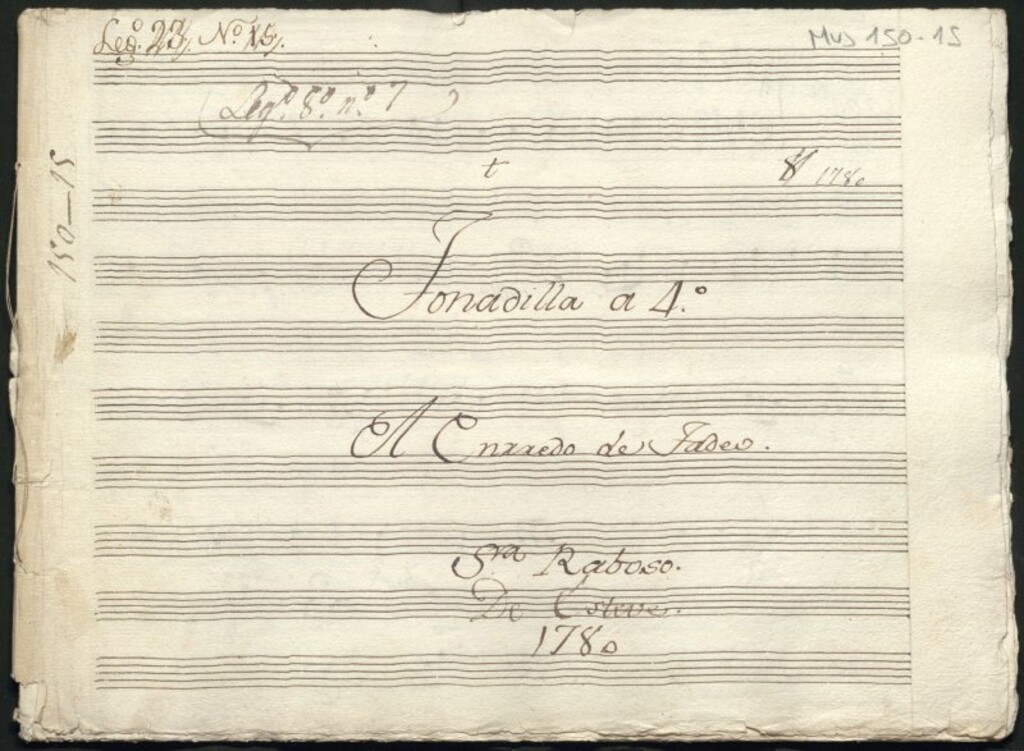 Leg.º 23, N.º 15,
Mus 150-15
Leg.º 8.º n.º 7
150-15
t
1780
Tonadilla a 4.º
El Enrredo de Tadeo.
Sra Raboso.
De Esteve.
1780